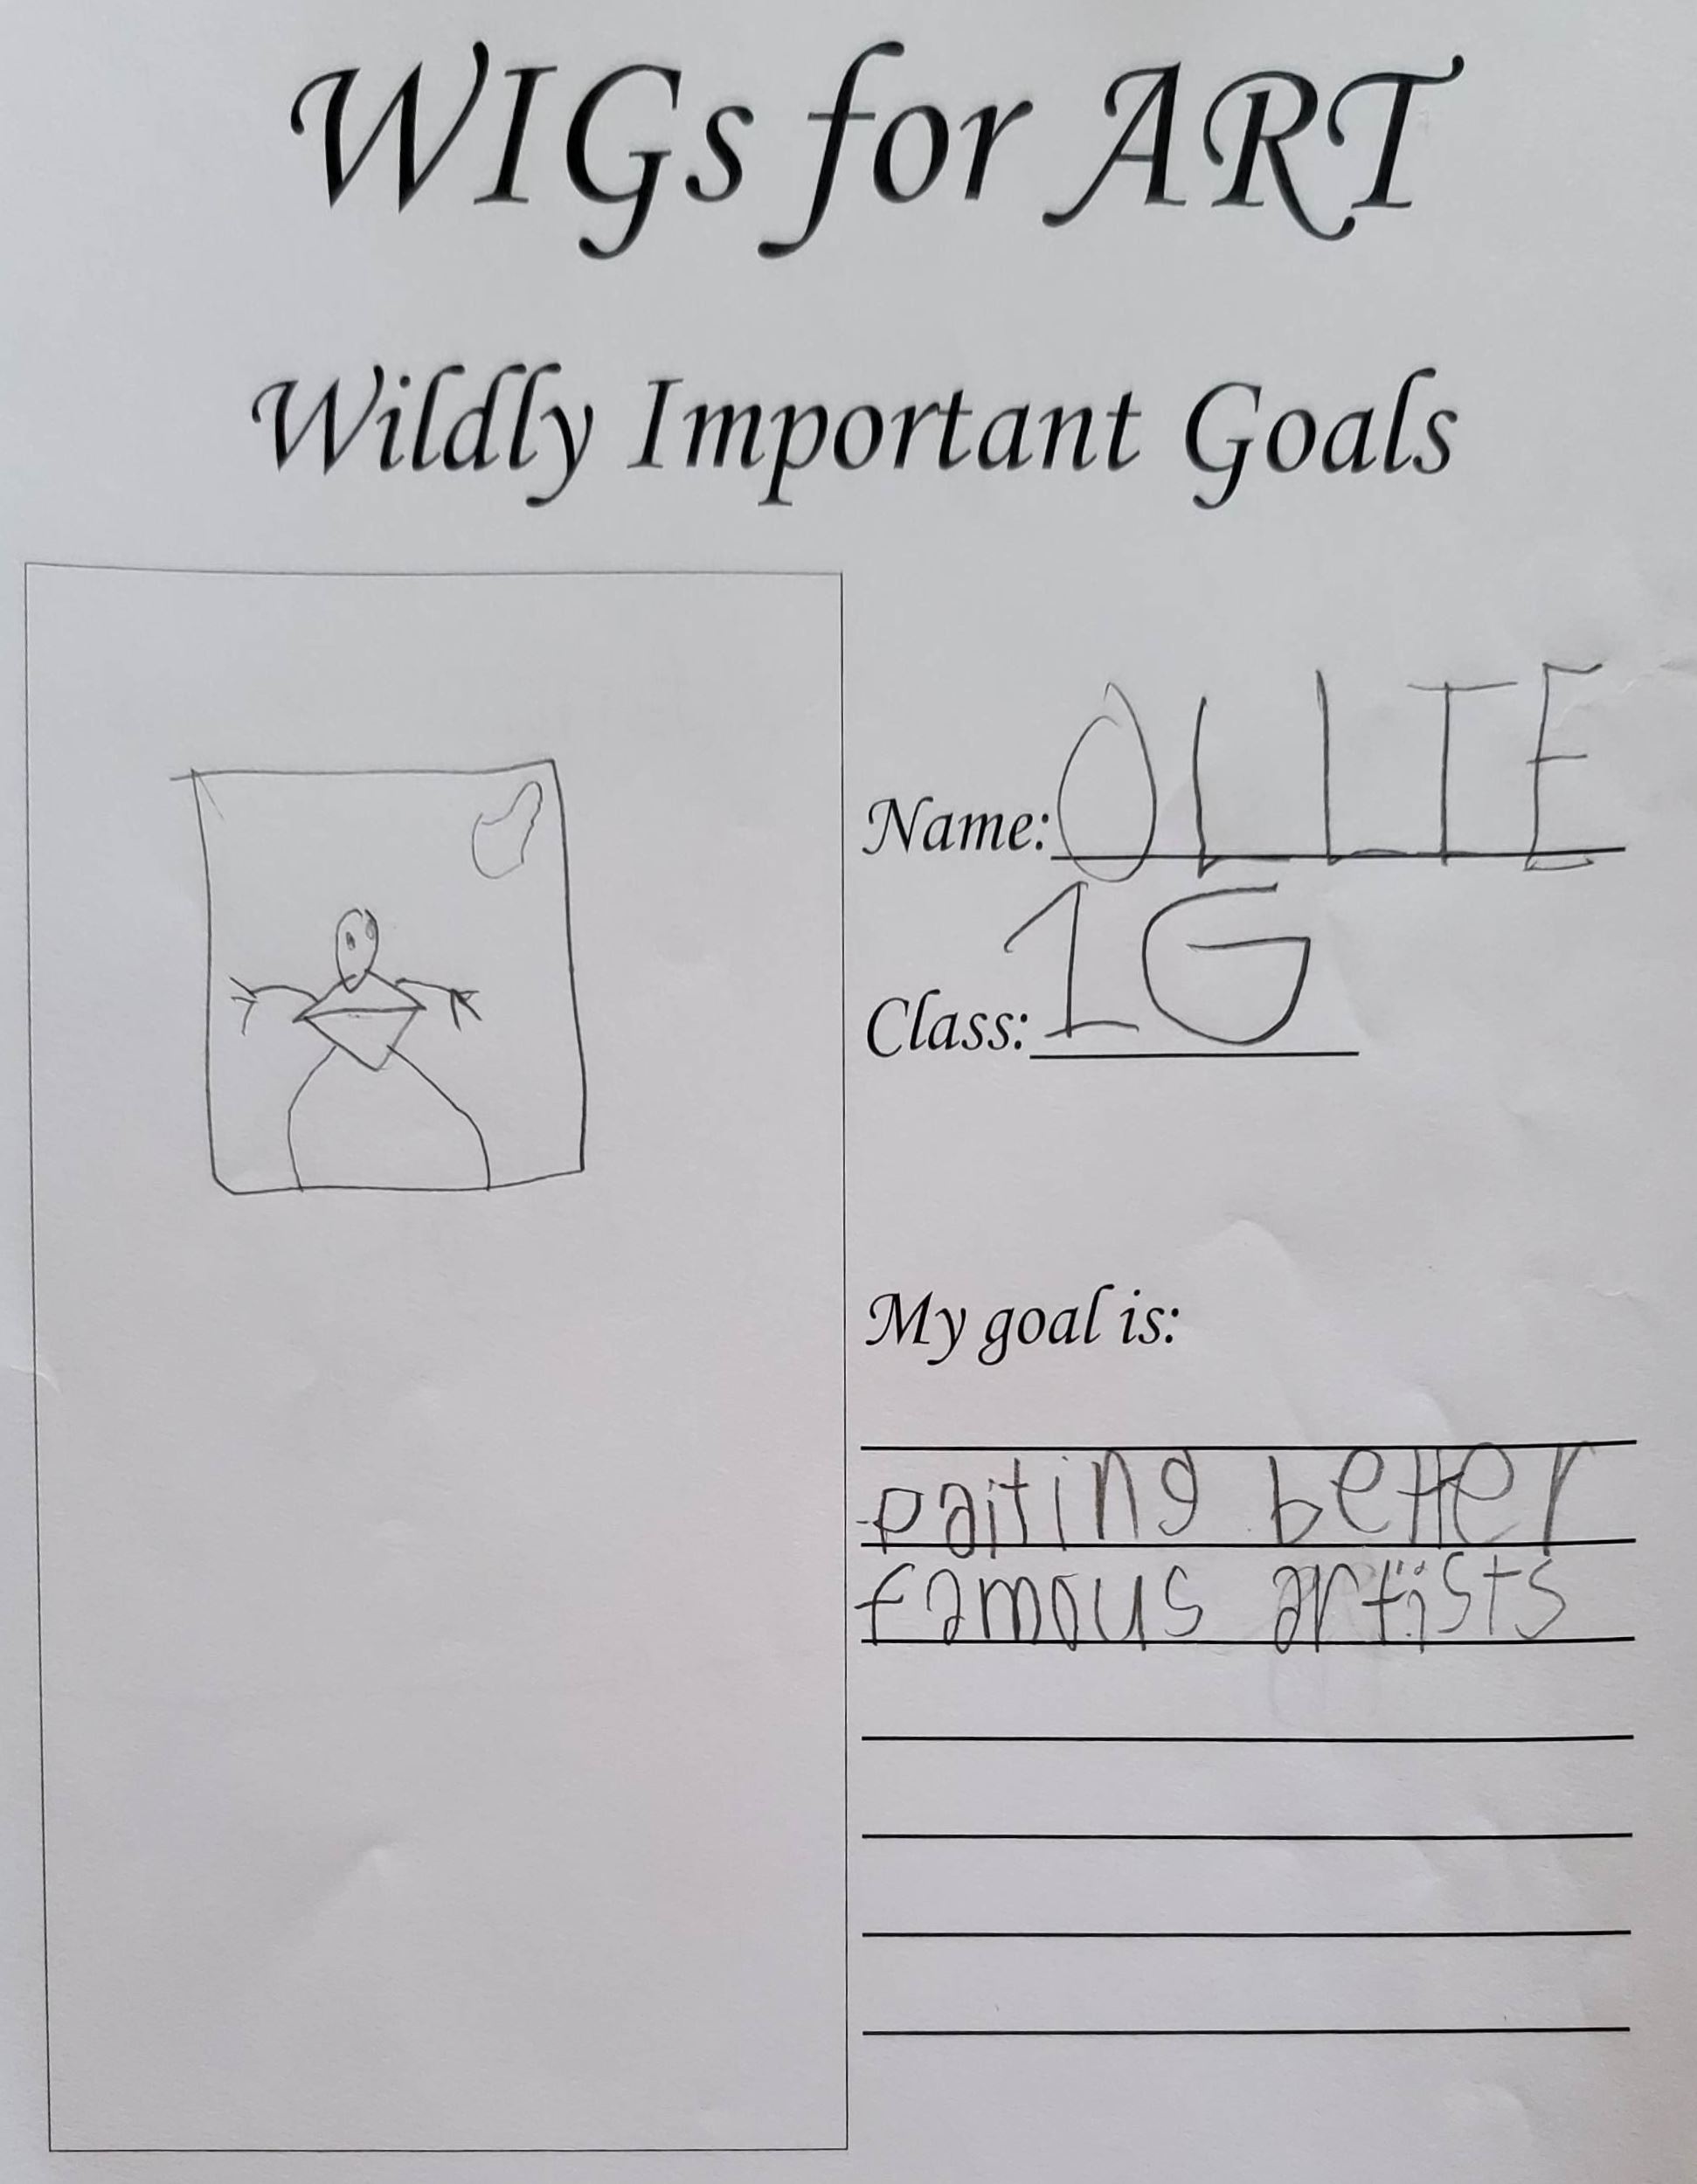 WIGs for ART
Wildly Important Goals
Name: OLLIE
Class: 1G
My goal is:
paiting better
famous artists